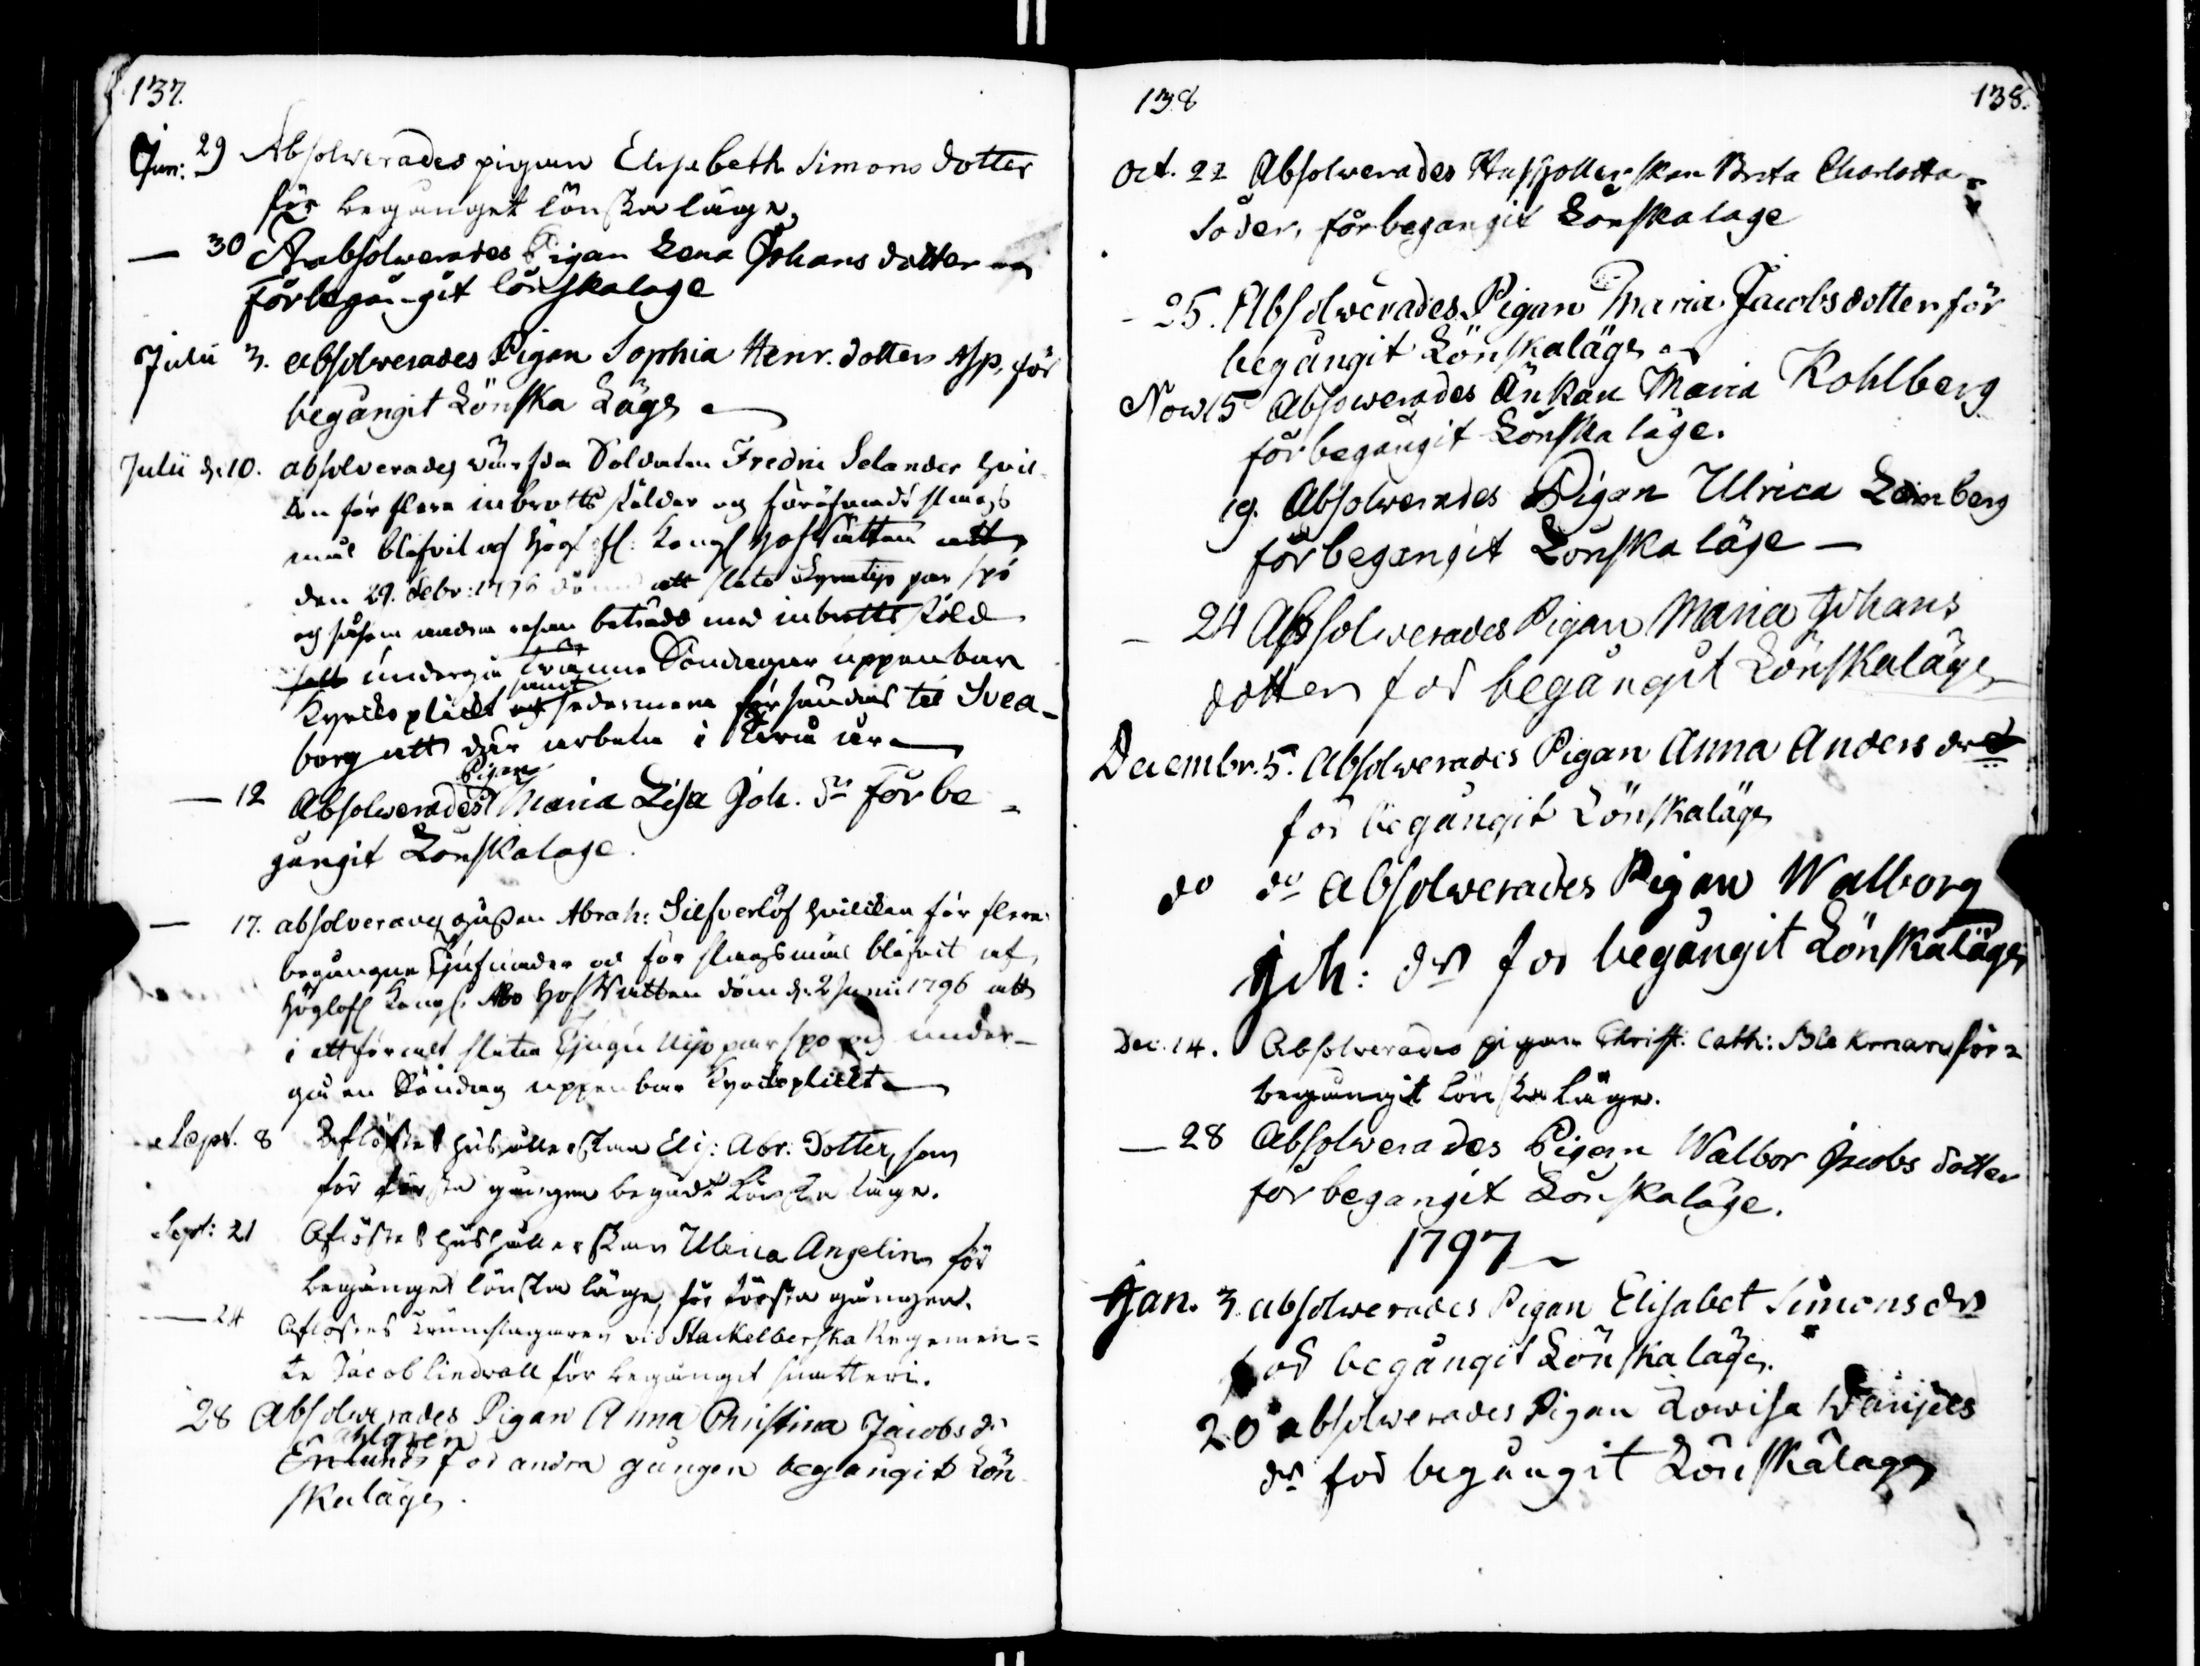 137.
Jun: 29 Absolverades pigan Elisabeth Simons dotter
för begånget lönska läge,
— 30 Absolverades Pigan Lena Johans dotter
för begångit lönskaläge
Julii 3. absolverades Pigan Sophia Henr. dotter Asp, för
begångit Lönska Läge
Julii d. 10. absolverades Soldaten Fredric Selander hvil-
ken för flera inbrotts stölder och föröfvade slags
mål blifvit af Kongl Hofrätten
den 29. Febr: 1796 att slita par spö
och såsom andra resan beträdd med inbrotts stöld
undergå Tvänne Söndagar uppenbar
Kyrckoplickt samt sedermera försändas til Svea-
borg att där arbeta i år
— 12 Absolverades Pigan Maria Lisa Joh. dr för be-
gångit Lönskalage.
— 17. absolverades Abrah: Silfverlöf hvilcken för flera
begångne och för slagsmål blifvit af
Höglofl Kongl. Åbo HofRätten dömd d. 2 Junii 1796 att
i ett för alt slita Tjugu Nijo par spö och under-
gå en Söndag uppenbar Kyrckoplickt
Sept. 8 Aflöstes hushållerskan Elis: Abr: Dotter, som
för första gången begådt Lönska läge.
Sept: 21 Aflöstes hushållerskan Ulrica Angelin för
begånget lönska läge, för första gången.
— 24 Aflöstes Trumslagaren vid Stackelberska Regemen=
te Jacob Lindvall för begånget snatteri.
28 Absolverades Pigan Anna Christina Jacobs dr
Ahlgren
Enlund för andra gången begångit Lön
skaläge.
138 138.
Oct. 22 Absolverades Hushollerskan Brita Charlotta
Söder, för begangit Lönskalage
- 25. Absolverades Pigan Maria Jacobsdotter för
begångit Lönskaläge
Nov 15 Absolverades Änkan Maria Kohlberg
för begångit Lönska läge.
19. Absolverades Pigan Ulrica Lemberg
för begangit Lönska läge —
— 24 Absolverades Pigan Maria Johans
dotter för begångit Lönskaläge
Decembr. 5. Absolverades Pigan Anna Anders dr
för begångit Lönskaläge
do do absolverades Pigan Walborg
Joh: dr för begångit Lönskaläge
Dec. 14. Absolverades pigan Christ: Cath: för=
begångit Lönska läge.
— 28 Absolverades Pigan Walbor Jacobs dotter
för begangit Lönskaläge.
1797
Jan. 3. absolverades Pigan Elisabet Simons dr
för begångit Lönska läge.
20 absolverades Pigan Lowisa
dr för begångit Lönskalage